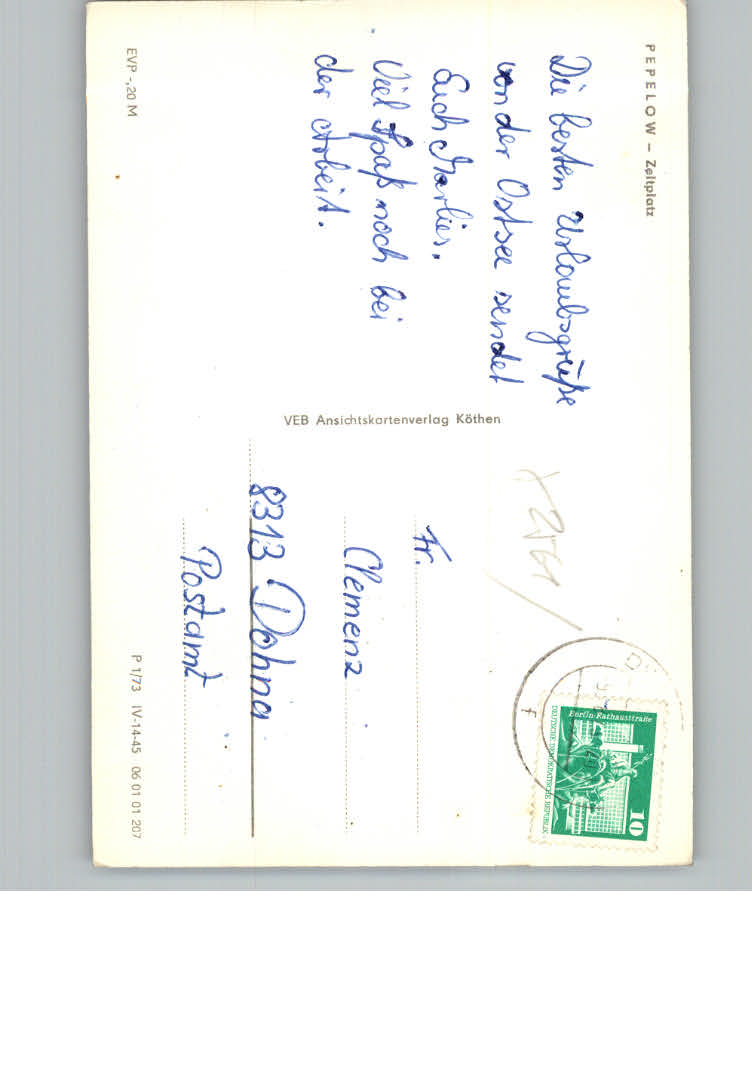 PEPELOW – Zeltplatz
Die besten Urlaubsgrüße
von der Ostsee sendet
Euch Marlies.
Viel Spaß noch bei
der Arbeit.
EVP -,20 M
VEB Ansichtskartenverlag Köthen
Fr.
Clemenz
8313 Dohna
Postamt
P 1/73 IV-14-45 06 01 01 207
Berlin·Rathausstraße
10
DEUTSCHE DEMOKRATISCHE REPUBLIK
f